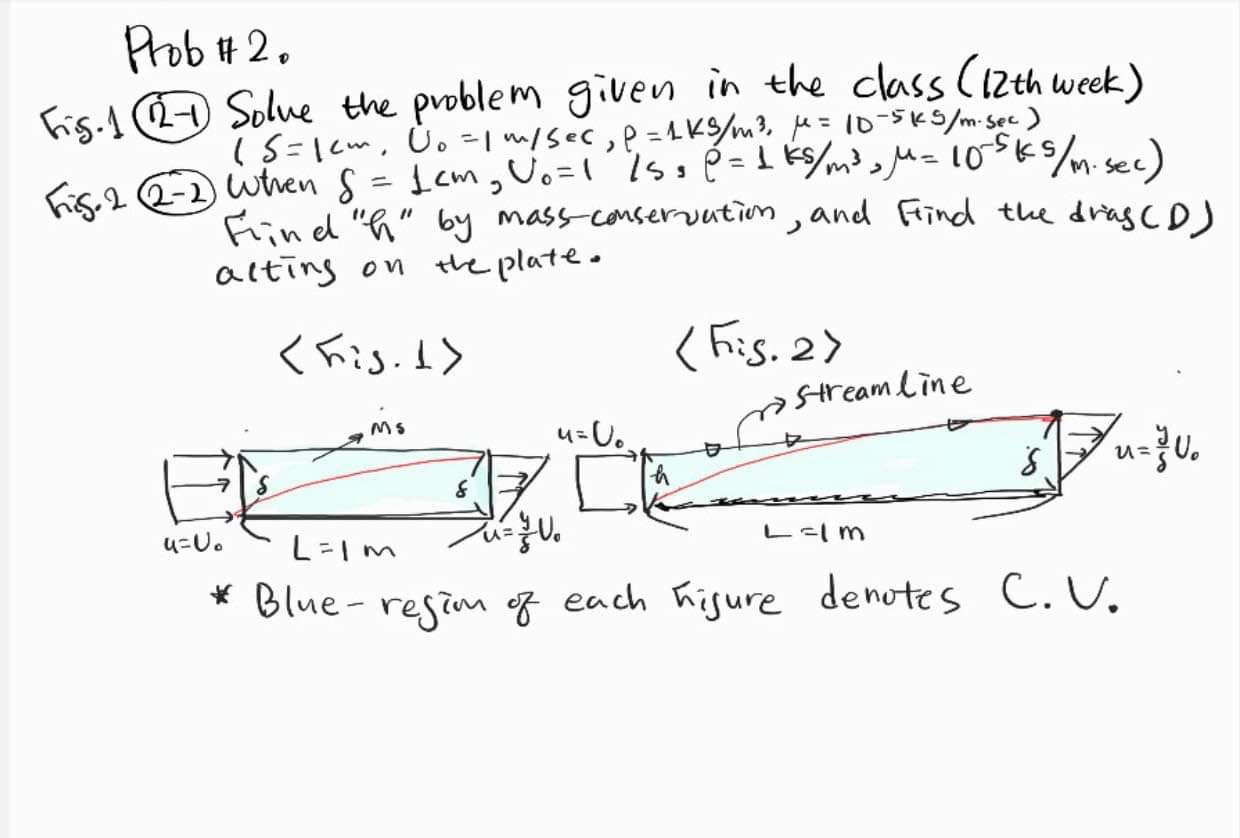 Prob #2.
Fig.1 (2-1) Solve the problem given in the class (12th week)
(δ=1cm, U₀=1m/sec, ρ=1kg/m³, μ=10⁻⁵kg/m·sec)
Fig.2 (2-2) When δ = 1cm, U₀=1 /s, ρ=1kg/m³, μ=10⁻⁵kg/m·sec)
Find "h" by mass-conservation, and Find the drag(D)
acting on the plate.
<Fig.1> <Fig.2>
streamline
ṁs
u=U₀
δ δ
h δ
u=y/δ U₀
u=U₀
L=1m
u=y/δ U₀
L=1m
* Blue-region of each figure denotes C.V.